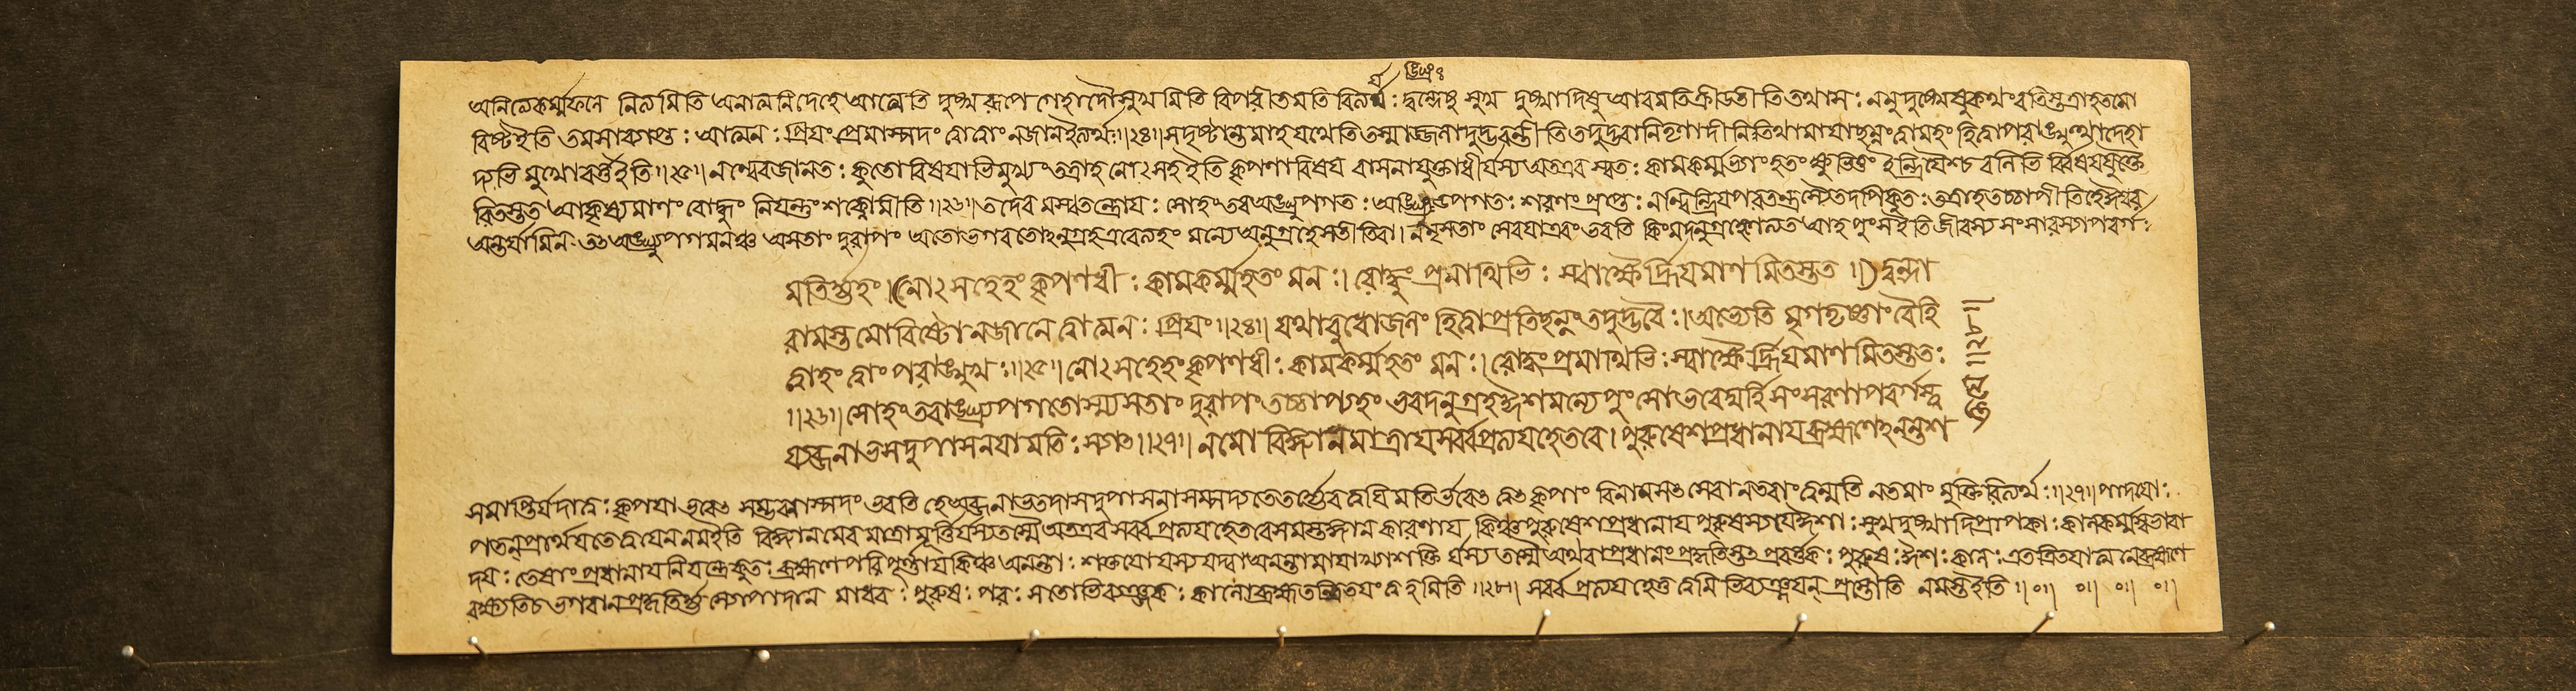 ঙ্ঘ্র্যং
অনিত্যেকর্ম্মফলে নিত্যমিতি অনাত্মনি দেহে আত্মেতি দুঃখরূপে গেহাদৌ সুখমিতি বিপরীতমতিরিত্যর্থঃ দ্বন্দ্বেষু সুখ দুঃখাদিষু আরমতি ক্রীডতীতি তথাসঃ ননু দুঃখেষু কথং রতিস্তত্রাহ তমো
বিষ্টইতি তমসা ব্যাপ্তঃ আত্মনঃ প্রিয়ং প্রেমাস্পদং ত্বাং নজানইত্যর্থঃ॥২৪॥ সদৃষ্টান্তমাহ যথেতি তস্মাজ্জলাদুদ্ভবন্তীতি তদুদ্ভবানি তৃণাদীনি তথা মাযাছন্নং ত্বামহং হিত্বা পরাঙ্মুখো দেহা
দ্যভিমুখো বর্ত্তইতি॥২৫॥ নন্বেবং জানতঃ কুতো বিষযাভিমুখ্যং তত্রাহ নোৎসহইতি কৃপণা বিষয বাসনাযুক্তা ধীর্যস্য অতএব স্বতঃ কামকর্ম্মভ্যাং হতং ক্ষুভিতং ইন্দ্রিযৈশ্চ বলিভির্বিষযযুক্তৈ
রিতস্তত আকৃষ্যমাণং রোদ্ধুং নিযন্তুং শক্নোমীতি॥২৬॥ তদেবমস্বতন্ত্রোযঃ সোহং তব অঙ্ঘ্র্যুপগতঃ অঙ্ঘ্র্যুপগতঃ শরণং প্রাপ্তঃ নন্বিন্দ্রিযপরতন্ত্রস্যৈতদপি কুতঃ তত্রাহ তচ্চাপীতি হেঈশ্বর
অন্তর্যামিন্ তৎ অঙ্ঘ্র্যুপগমনঞ্চ অসতাং দুরাপং অতো ভগবতোঽনুগ্রহএবেত্যহং মন্যে অনুগ্রহে সতীতি বা। সেবযা এবং ভবতি কিং মদনুগ্রহেণেত্যত আহ পুংসইতি জীবস্য সংসারস্যাপবর্গঃ
মতির্হ্যহং।(নোৎসহেহং কৃপণধীঃ কামকর্ম্মহতং মনঃ। রোদ্ধুং প্রমাথিভিঃ স্বাক্ষৈর্হ্রিযমাণমিতস্তত।) দ্বন্দ্বা
রামস্তমোবিষ্টো নজানে ত্বাত্মনঃ প্রিয়ং॥২৪॥ যথাবুধোজলং হিত্বা প্রতিচ্ছন্নং তদুদ্ভবৈঃ। অভ্যেতি মৃগতৃষ্ণাং বৈ
ত্বাহং ত্বাং পরাঙ্মুখঃ॥২৫॥ নোৎসহেহং কৃপণধীঃ কামকর্ম্মহতং মনঃ। রোদ্ধুং প্রমাথিভিঃ স্বাক্ষৈর্হ্রিযমাণমিতস্ততঃ
॥২৬॥ সোহং তবাঙ্ঘ্র্যুপগতোস্ম্যসতাং দুরাপং তচ্চাপ্যহং ভবদনুগ্রহঈশ মন্যে পুংসো ভবেদ্যর্হি সংসরণাপবর্গস্ত্ব
য্যব্জনাভ সদুপাসনযা মতিঃ স্যাৎ॥২৭॥ নমো বিজ্ঞানমাত্রায সর্ব্বপ্রত্যযহেতবে। পুরুষেশপ্রধানায ব্রহ্মণেঽনন্তশ
ক্তযে॥২৮॥
সমাপ্তির্যদা ত্বৎ কৃপযা ভবেৎ সম্ভবনাস্পদং ভবতি হেঅব্জনাভ তদা সদুপাসনা সম্পদ্যতে তর্হ্যেব ত্বযি মতির্ভবেৎ ত্বৎকৃপাং বিনা ন সৎসেবা নতরাং ত্বন্মতি নতমাং মুক্তিরিত্যর্থঃ॥২৭॥ পাদযোঃ
পতন্ প্রার্থযতে নমইতি বিজ্ঞানমেব মাত্রা মূর্ত্তির্যস্য তস্মৈ অতএব সর্ব্বপ্রত্যযহেতবে সমস্তজ্ঞানকারণায কিঞ্চ পুরুষেশপ্রধানায পুরুষস্য যেঈশাঃ সুখদুঃখাদিপ্রাপকাঃ কালকর্ম্মস্বভাবা
দযঃ তেষাং প্রধানায নিযন্ত্রে কুতঃ ব্রহ্মণে পরিপূর্ণায কিঞ্চ অনন্তাঃ শক্তযো যস্য যদ্বা অনন্তা মাযাখ্যা শক্তি র্যস্য তস্মৈ অথবা প্রধানং প্রকৃতিস্তৎ প্রবর্ত্তকঃ পুরুষঃ ঈশঃ কালঃ এতত্ত্রিতযাত্মনে ব্রহ্মণে
বক্ষ্যতিচ ভগবান্ প্রকৃতির্হ্যস্যোপাদান মাধবঃ পুরুষঃ পরঃ সতোভিব্যঞ্জকঃ কালো ব্রহ্ম তত্ত্রিতযং ত্বহমিতি॥২৮॥ সর্ব্বপ্রত্যযহেতুত্বমভিব্যঞ্জযন্ প্রস্তৌতি নমস্তইতি॥০॥ ০॥ ০॥ ০॥